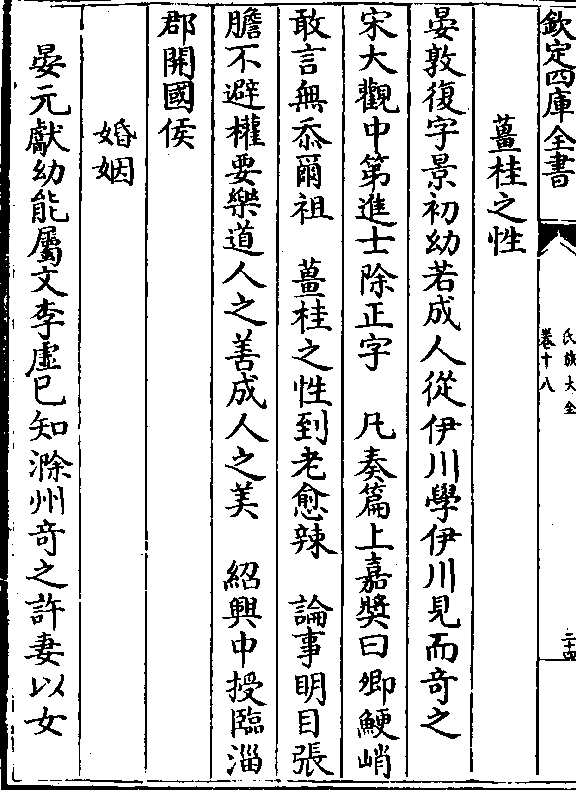 欽定四庫全書
氏族大全
卷十八
二十四
薑桂之性
晏敦復字景初幼若成人從伊川學伊川見而竒之
宋大觀中第進士除正字　凡奏篇上嘉奬曰卿鯁峭
敢言無忝爾祖　薑桂之性到老愈辣　論事明目張
膽不避權要樂道人之善成人之美　紹興中授臨淄
郡開國侯
婚姻
晏元獻幼能屬文李虛已知滁州竒之許妻以女